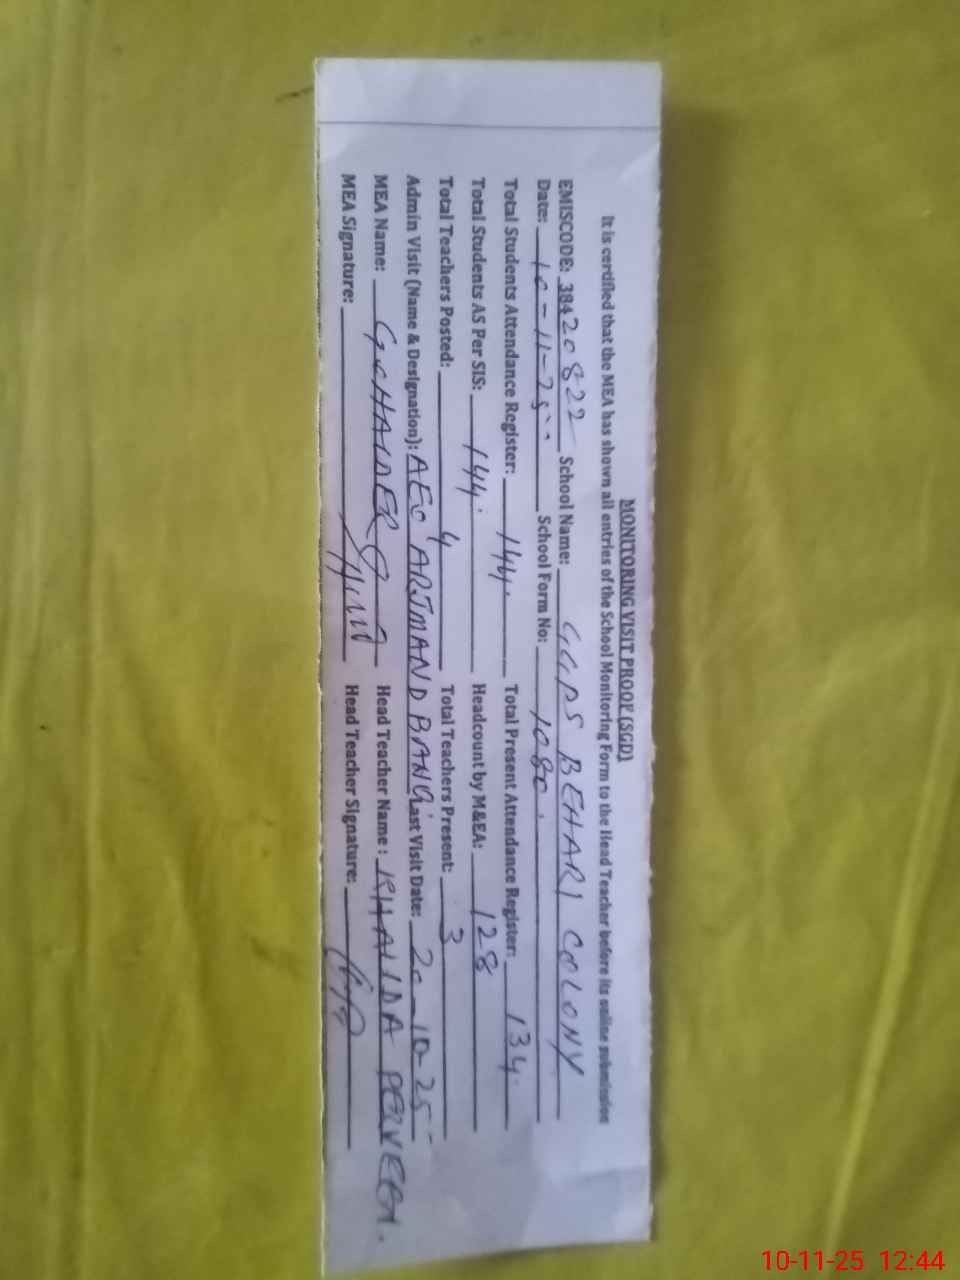 MONITORING VISIT PROOF (SGD)
It is certified that the MEA has shown all entries of the School Monitoring Form to the Head Teacher before its online submission
EMISCODE: 38420822 School Name: GGPS BEHARI COLONY
Date: 10-11-25 School Form No: 1080.
Total Students Attendance Register: 144. Total Present Attendance Register: 134.
Total Students AS Per SIS: 144. Headcount by M&EA: 128
Total Teachers Posted: 4 Total Teachers Present: 3
Admin Visit (Name & Designation): AEO ARJMAND BANO Last Visit Date: 20-10-25
MEA Name: G. HAIDER Head Teacher Name: KHALIDA PERVEEN.
MEA Signature: Head Teacher Signature:
10-11-25 12:44